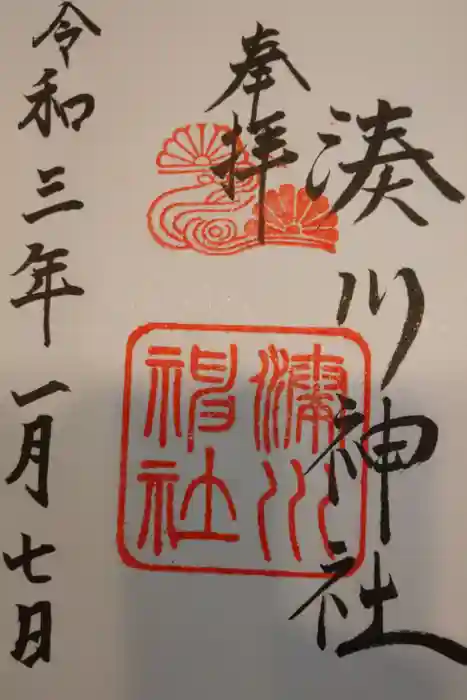 奉拝
湊川神社
湊川
神社
令和三年一月七日